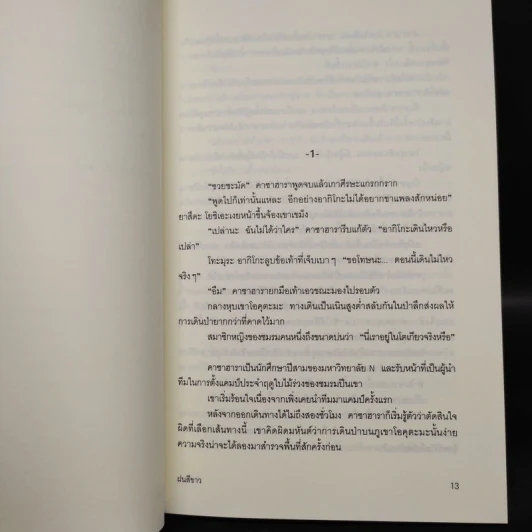 -1-
“ซวยชะมัด” คาซาฮาราพูดจบแล้วเกาศีรษะแกรกกราก
“พูดไปก็เท่านั้นแหละ อีกอย่างอากิโกะไม่ได้อยากขาแพลงสักหน่อย”
ยาสึดะ โยชิเอะเงยหน้าขึ้นจ้องเขาเขม็ง
“เปล่านะ ฉันไม่ได้ว่าใคร” คาซาฮารารีบแก้ตัว “อากิโกะเดินไหวหรือ
เปล่า”
โทะมุระ อากิโกะลูบข้อเท้าที่เจ็บเบาๆ “ขอโทษนะ... ตอนนี้เดินไม่ไหว
จริงๆ”
“อืม” คาซาฮารายกมือเท้าเอวขณะมองไปรอบตัว
กลางหุบเขาโอคุตะมะ ทางเดินเป็นเนินสูงต่ำสลับกันในป่าลึกส่งผลให้
การเดินป่ายากกว่าที่คาดไว้มาก
สมาชิกหญิงของชมรมคนหนึ่งถึงขนาดบ่นว่า “นี่เราอยู่ในโตเกียวจริงหรือ”
คาซาฮาราเป็นนักศึกษาปีสามของมหาวิทยาลัย N และรับหน้าที่เป็นผู้นำ
ทีมในการตั้งแคมป์ประจำฤดูใบไม้ร่วงของชมรมปีนเขา
เขาเริ่มร้อนใจเนื่องจากเพิ่งเคยนำทีมมาแคมป์ครั้งแรก
หลังจากออกเดินทางได้ไม่ถึงสองชั่วโมง คาซาฮาราก็เริ่มรู้ตัวว่าตัดสินใจ
ผิดที่เลือกเส้นทางนี้ เขาคิดผิดมหันต์ว่าการเดินป่าบนภูเขาโอคุตะมะนั้นง่าย
ความจริงน่าจะได้ลองมาสำรวจพื้นที่สักครั้งก่อน
ฝนสีขาว
13